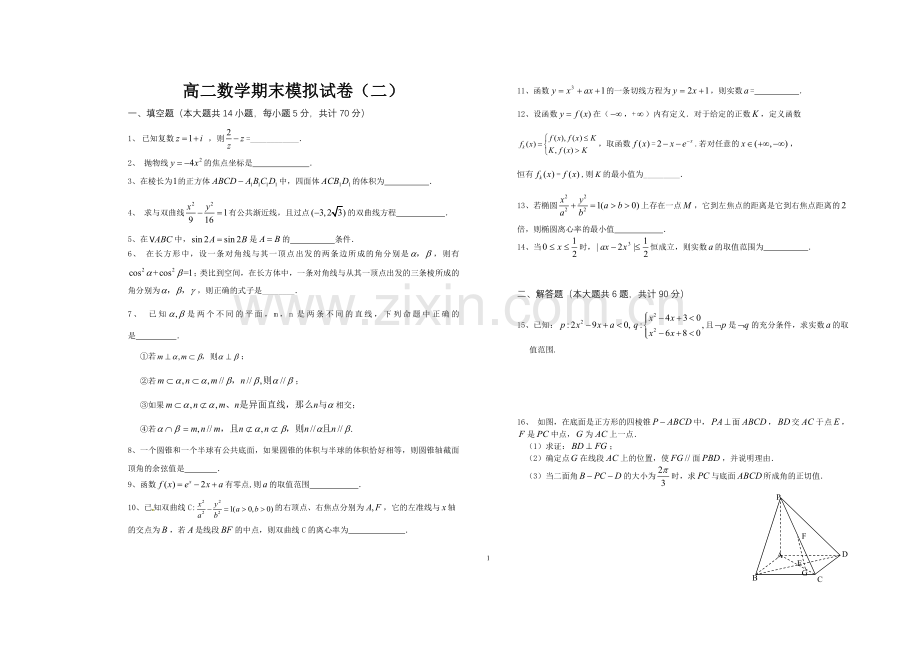 高二数学期末模拟试卷（二）
一、填空题（本大题共14小题．每小题5分．共计70分）
1、 已知复数 z = 1 + i ，则 2/z − z =__________．
2、 抛物线 y = −4x² 的焦点坐标是____________．
3、在棱长为1的正方体 ABCD − A₁B₁C₁D₁ 中，四面体 ACB₁D₁ 的体积为__________．
4、 求与双曲线 x²/9 − y²/16 = 1 有公共渐近线，且过点 (−3,2√3) 的双曲线方程__________．
5、在 VABC 中，sin 2A = sin 2B 是 A = B 的__________条件．
6、 在长方形中，设一条对角线与其一顶点出发的两条边所成的角分别是 α，β，则有
cos²α+cos²β=1；类比到空间，在长方体中，一条对角线与从其一顶点出发的三条棱所成的
角分别为 α，β，γ，则正确的式子是________．
7、 已知 α,β 是两个不同的平面，m，n 是两条不同的直线，下列命题中正确的
是__________．
①若 m ⊥ α,m ⊂ β，则 α ⊥ β；
②若 m ⊂ α,n ⊂ α,m // β，n // β,则 α // β；
③如果 m ⊂ α,n ⊄ α,m、n是异面直线，那么n与α 相交；
④若 α ∩ β = m,n // m，且n ⊄ α,n ⊄ β，则n // α且n // β．
8、一个圆锥和一个半球有公共底面，如果圆锥的体积与半球的体积恰好相等，则圆锥轴截面
顶角的余弦值是________．
9、函数 f(x) = eˣ − 2x + a 有零点,则 a 的取值范围____________．
10、已知双曲线 C: x²/a² − y²/b² = 1(a > 0,b > 0) 的右顶点、右焦点分别为 A,F，它的左准线与 x 轴
的交点为 B，若 A 是线段 BF 的中点，则双曲线 C 的离心率为____________．
1
11、函数 y = x³ + ax + 1 的一条切线方程为 y = 2x + 1，则实数 a =__________．
12、设函数 y = f(x) 在（−∞，+∞）内有定义．对于给定的正数 K，定义函数
f_k(x) = {f(x), f(x) ≤ K
K, f(x) > K ，取函数 f(x) = 2 − x − e⁻ˣ．若对任意的 x ∈ (+∞,−∞)，
恒有 f_k(x) = f(x),则 K 的最小值为________．
13、若椭圆 x²/a² + y²/b² = 1(a > b > 0) 上存在一点 M，它到左焦点的距离是它到右焦点距离的 2
倍，则椭圆离心率的最小值__________．
14、当 0 ≤ x ≤ 1/2 时，| ax − 2x³ |≤ 1/2 恒成立，则实数 a 的取值范围为__________．
二、解答题（本大题共6题．共计90分）
15、已知：p : 2x² − 9x + a < 0，q : {x² − 4x + 3 < 0
x² − 6x + 8 < 0，且 ¬p 是 ¬q 的充分条件，求实数 a 的取
值范围．
16、 如图，在底面是正方形的四棱锥 P − ABCD 中，PA ⊥ 面 ABCD，BD 交 AC 于点 E，
F 是 PC 中点，G 为 AC 上一点．
（1）求证：BD ⊥ FG；
（2）确定点 G 在线段 AC 上的位置，使 FG // 面 PBD，并说明理由．
（3）当二面角 B − PC − D 的大小为 2π/3 时，求 PC 与底面 ABCD 所成角的正切值．
P
F
A
D
E
B
G
C
www.zixin.com.cn